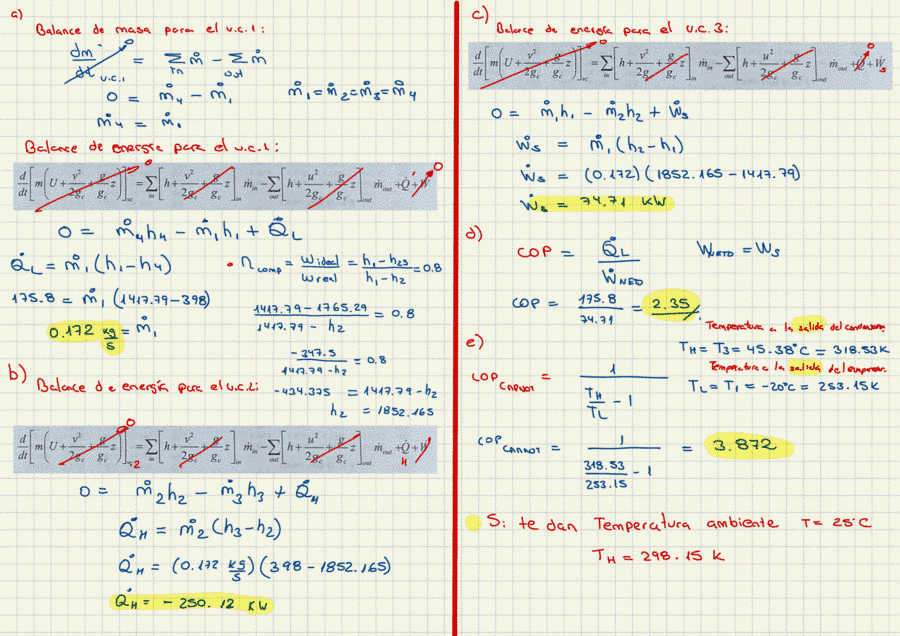 a)
Balance de masa para el v.c.1:
dm/dt v.c.1 → 0 = Σ in ṁ - Σ out ṁ
0 = ṁ4 - ṁ1    ṁ1 = ṁ2 = ṁ3 = ṁ4
ṁ4 = ṁ1
Balance de energía para el v.c.1:
d/dt [m(U + v²/2g_c + g/g_c z)]_vc → 0 = Σ in [h + v²/2g_c + g/g_c z]_in ṁ_in - Σ out [h + u²/2g_c + g/g_c z]_out ṁ_out + Q̇ + Ẇ → 0
0 = ṁ4h4 - ṁ1h1 + Q̇L
Q̇L = ṁ1(h1-h4)
175.8 = ṁ1(1417.79-398)
0.172 kg/s = ṁ1
• ηcomp = Wideal/Wreal = h1-h2s/h1-h2 = 0.8
1417.79 - 1765.29/1417.79 - h2 = 0.8
-347.5/1417.79-h2 = 0.8
-434.375 = 1417.79-h2
h2 = 1852.165
b)
Balance de energía para el v.c.2:
d/dt [m(U + v²/2g_c + g/g_c z)] → 0 = Σ in [h + v²/2g_c + g/g_c z]_in ṁ_in - Σ out [h + u²/2g_c + g/g_c z]_out ṁ_out + Q̇ H + W
0 = ṁ2h2 - ṁ3h3 + Q̇H
Q̇H = ṁ2(h3-h2)
Q̇H = (0.172 kg/s)(398 - 1852.165)
Q̇H = -250.12 KW
c)
Balance de energía para el v.c.3:
d/dt [m(U + v²/2g_c + g/g_c z)]_vc → 0 = Σ in [h + v²/2g_c + g/g_c z]_in ṁ_in - Σ out [h + u²/2g_c + g/g_c z]_out ṁ_out + Q̇ → 0 + Ẇ s
0 = ṁ1h1 - ṁ2h2 + Ẇs
Ẇs = ṁ1(h2-h1)
Ẇs = (0.172)(1852.165-1417.79)
Ẇs = 74.71 KW
d)
COP = Q̇L/ẆNETO    WNETO = Ws
COP = 175.8/74.71 = 2.35
e)
Temperatura a la salida del condensador.
TH = T3 = 45.38°C = 318.53K
Temperatura a la salida del evaporador.
TL = T1 = -20°C = 253.15K
COP CARNOT = 1/(TH/TL - 1)
COP CARNOT = 1/(318.53/253.15 - 1) = 3.872
S: te dan Temperatura ambiente T = 25°C
TH = 298.15 K